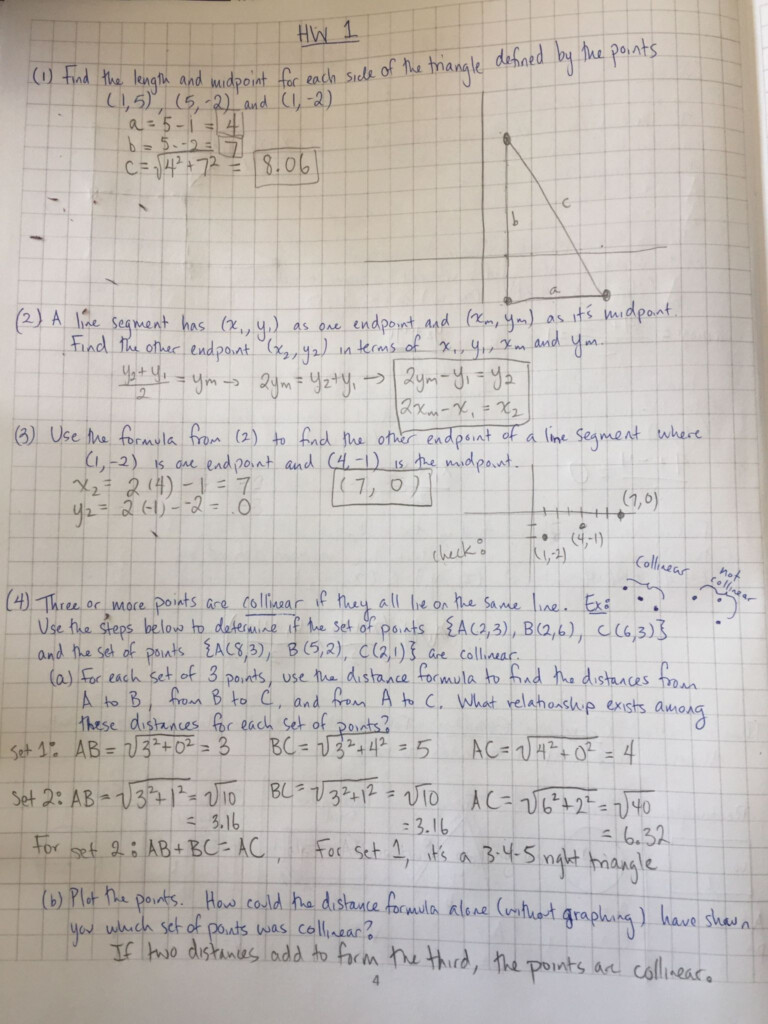 HW 1
(1) Find the length and midpoint for each side of the triangle defined by the points
(1,5), (5,-2) and (1,-2)
a = 5 - 1 = 4
b = 5 - -2 = 7
c = √4² + 7² = 8.06
b
c
a
(2) A line segment has (x₁, y₁) as one endpoint and (xₘ, yₘ) as it's midpoint.
Find the other endpoint (x₂, y₂) in terms of x₁, y₁, xₘ and yₘ.
y₂ + y₁ / 2 = yₘ → 2yₘ = y₂ + y₁ → 2yₘ - y₁ = y₂
2xₘ - x₁ = x₂
(3) Use the formula from (2) to find the other endpoint of a line segment where
(1, -2) is one endpoint and (4, -1) is the midpoint.
x₂ = 2(4) - 1 = 7 (7, 0)
y₂ = 2(-1) - -2 = 0
check:
(7,0)
(4,-1)
(1,-2)
collinear
not collinear
(4) Three or more points are collinear if they all lie on the same line. Ex:
Use the steps below to determine if the set of points {A(2,3), B(2,6), C(6,3)}
and the set of points {A(8,3), B(5,2), C(2,1)} are collinear.
(a) For each set of 3 points, use the distance formula to find the distances from
A to B, from B to C, and from A to C. What relationship exists among
these distances for each set of points?
Set 1: AB = √3² + 0² = 3 BC = √3² + 4² = 5 AC = √4² + 0² = 4
Set 2: AB = √3² + 1² = √10 BC = √3² + 1² = √10 AC = √6² + 2² = √40
= 3.16 = 3.16 = 6.32
For set 2: AB + BC = AC, For set 1, it's a 3-4-5 right triangle
(b) Plot the points. How could the distance formula alone (without graphing) have shown
you which set of points was collinear?
If two distances add to form the third, the points are collinear.
4